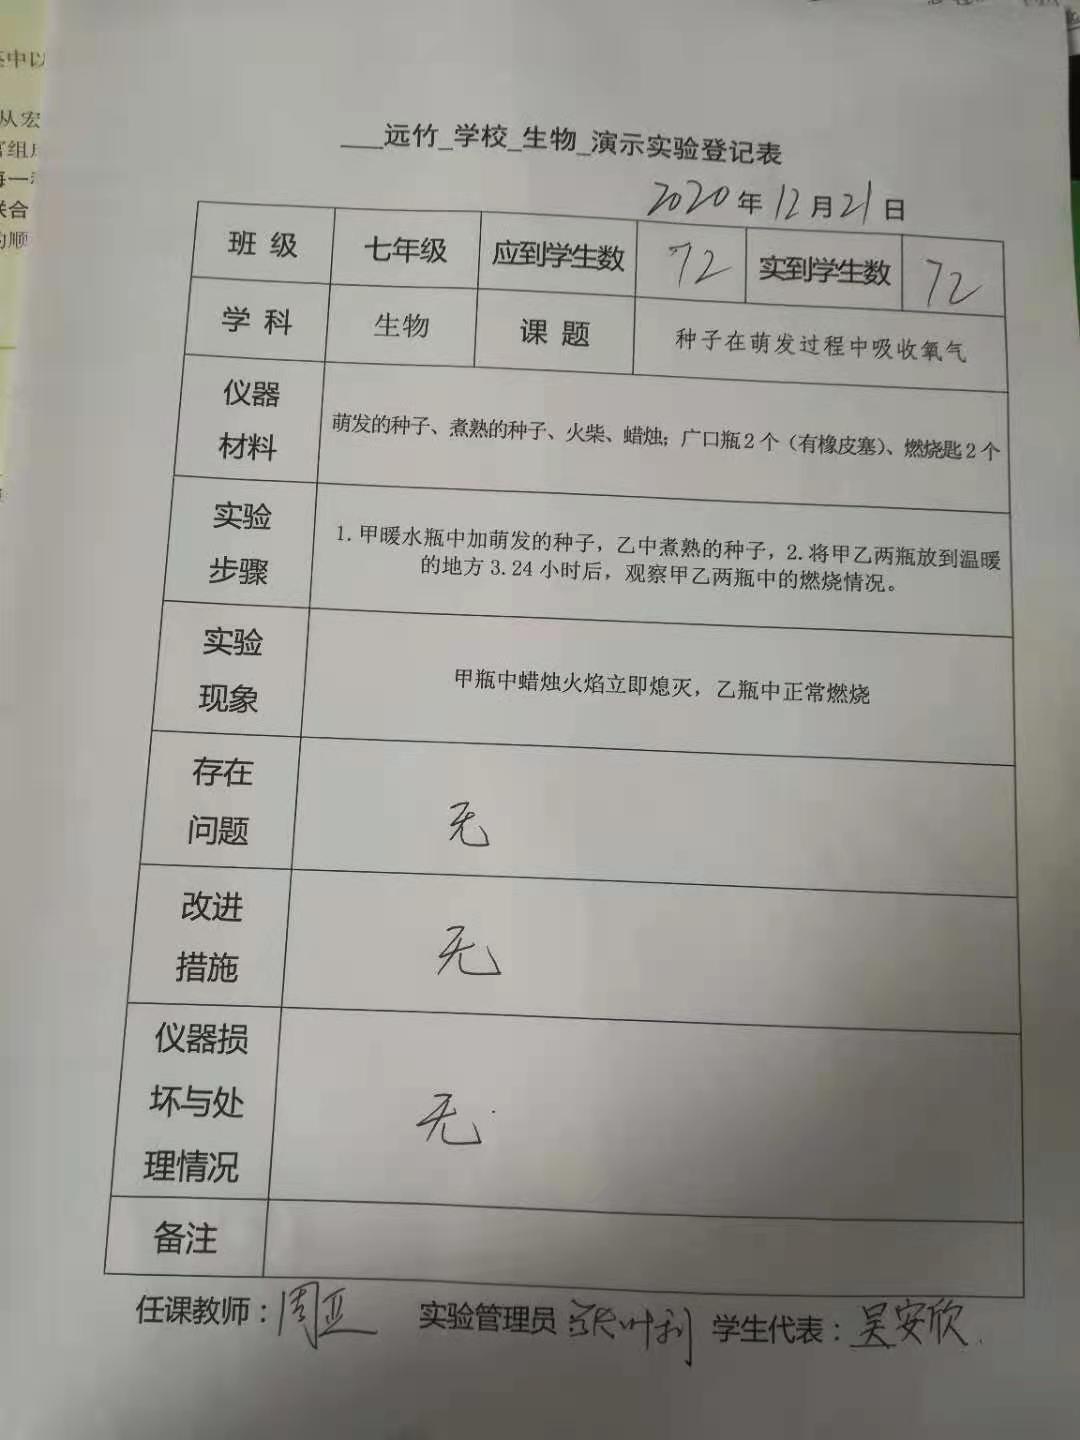 ___远竹_学校_生物_演示实验登记表
2020年12月21日
班 级 七年级 应到学生数 72 实到学生数 72
学 科 生物 课 题 种子在萌发过程中吸收氧气
仪器
材料
萌发的种子、煮熟的种子、火柴、蜡烛；广口瓶2个（有橡皮塞）、燃烧匙2个
实验
步骤
1.甲暖水瓶中加萌发的种子，乙中煮熟的种子，2.将甲乙两瓶放到温暖
的地方 3.24 小时后，观察甲乙两瓶中的燃烧情况。
实验
现象
甲瓶中蜡烛火焰立即熄灭，乙瓶中正常燃烧
存在
问题
无
改进
措施
无
仪器损
坏与处
理情况
无
备注
任课教师：周亚 实验管理员 张叶利 学生代表：吴安欣
从宏
联合
的顺